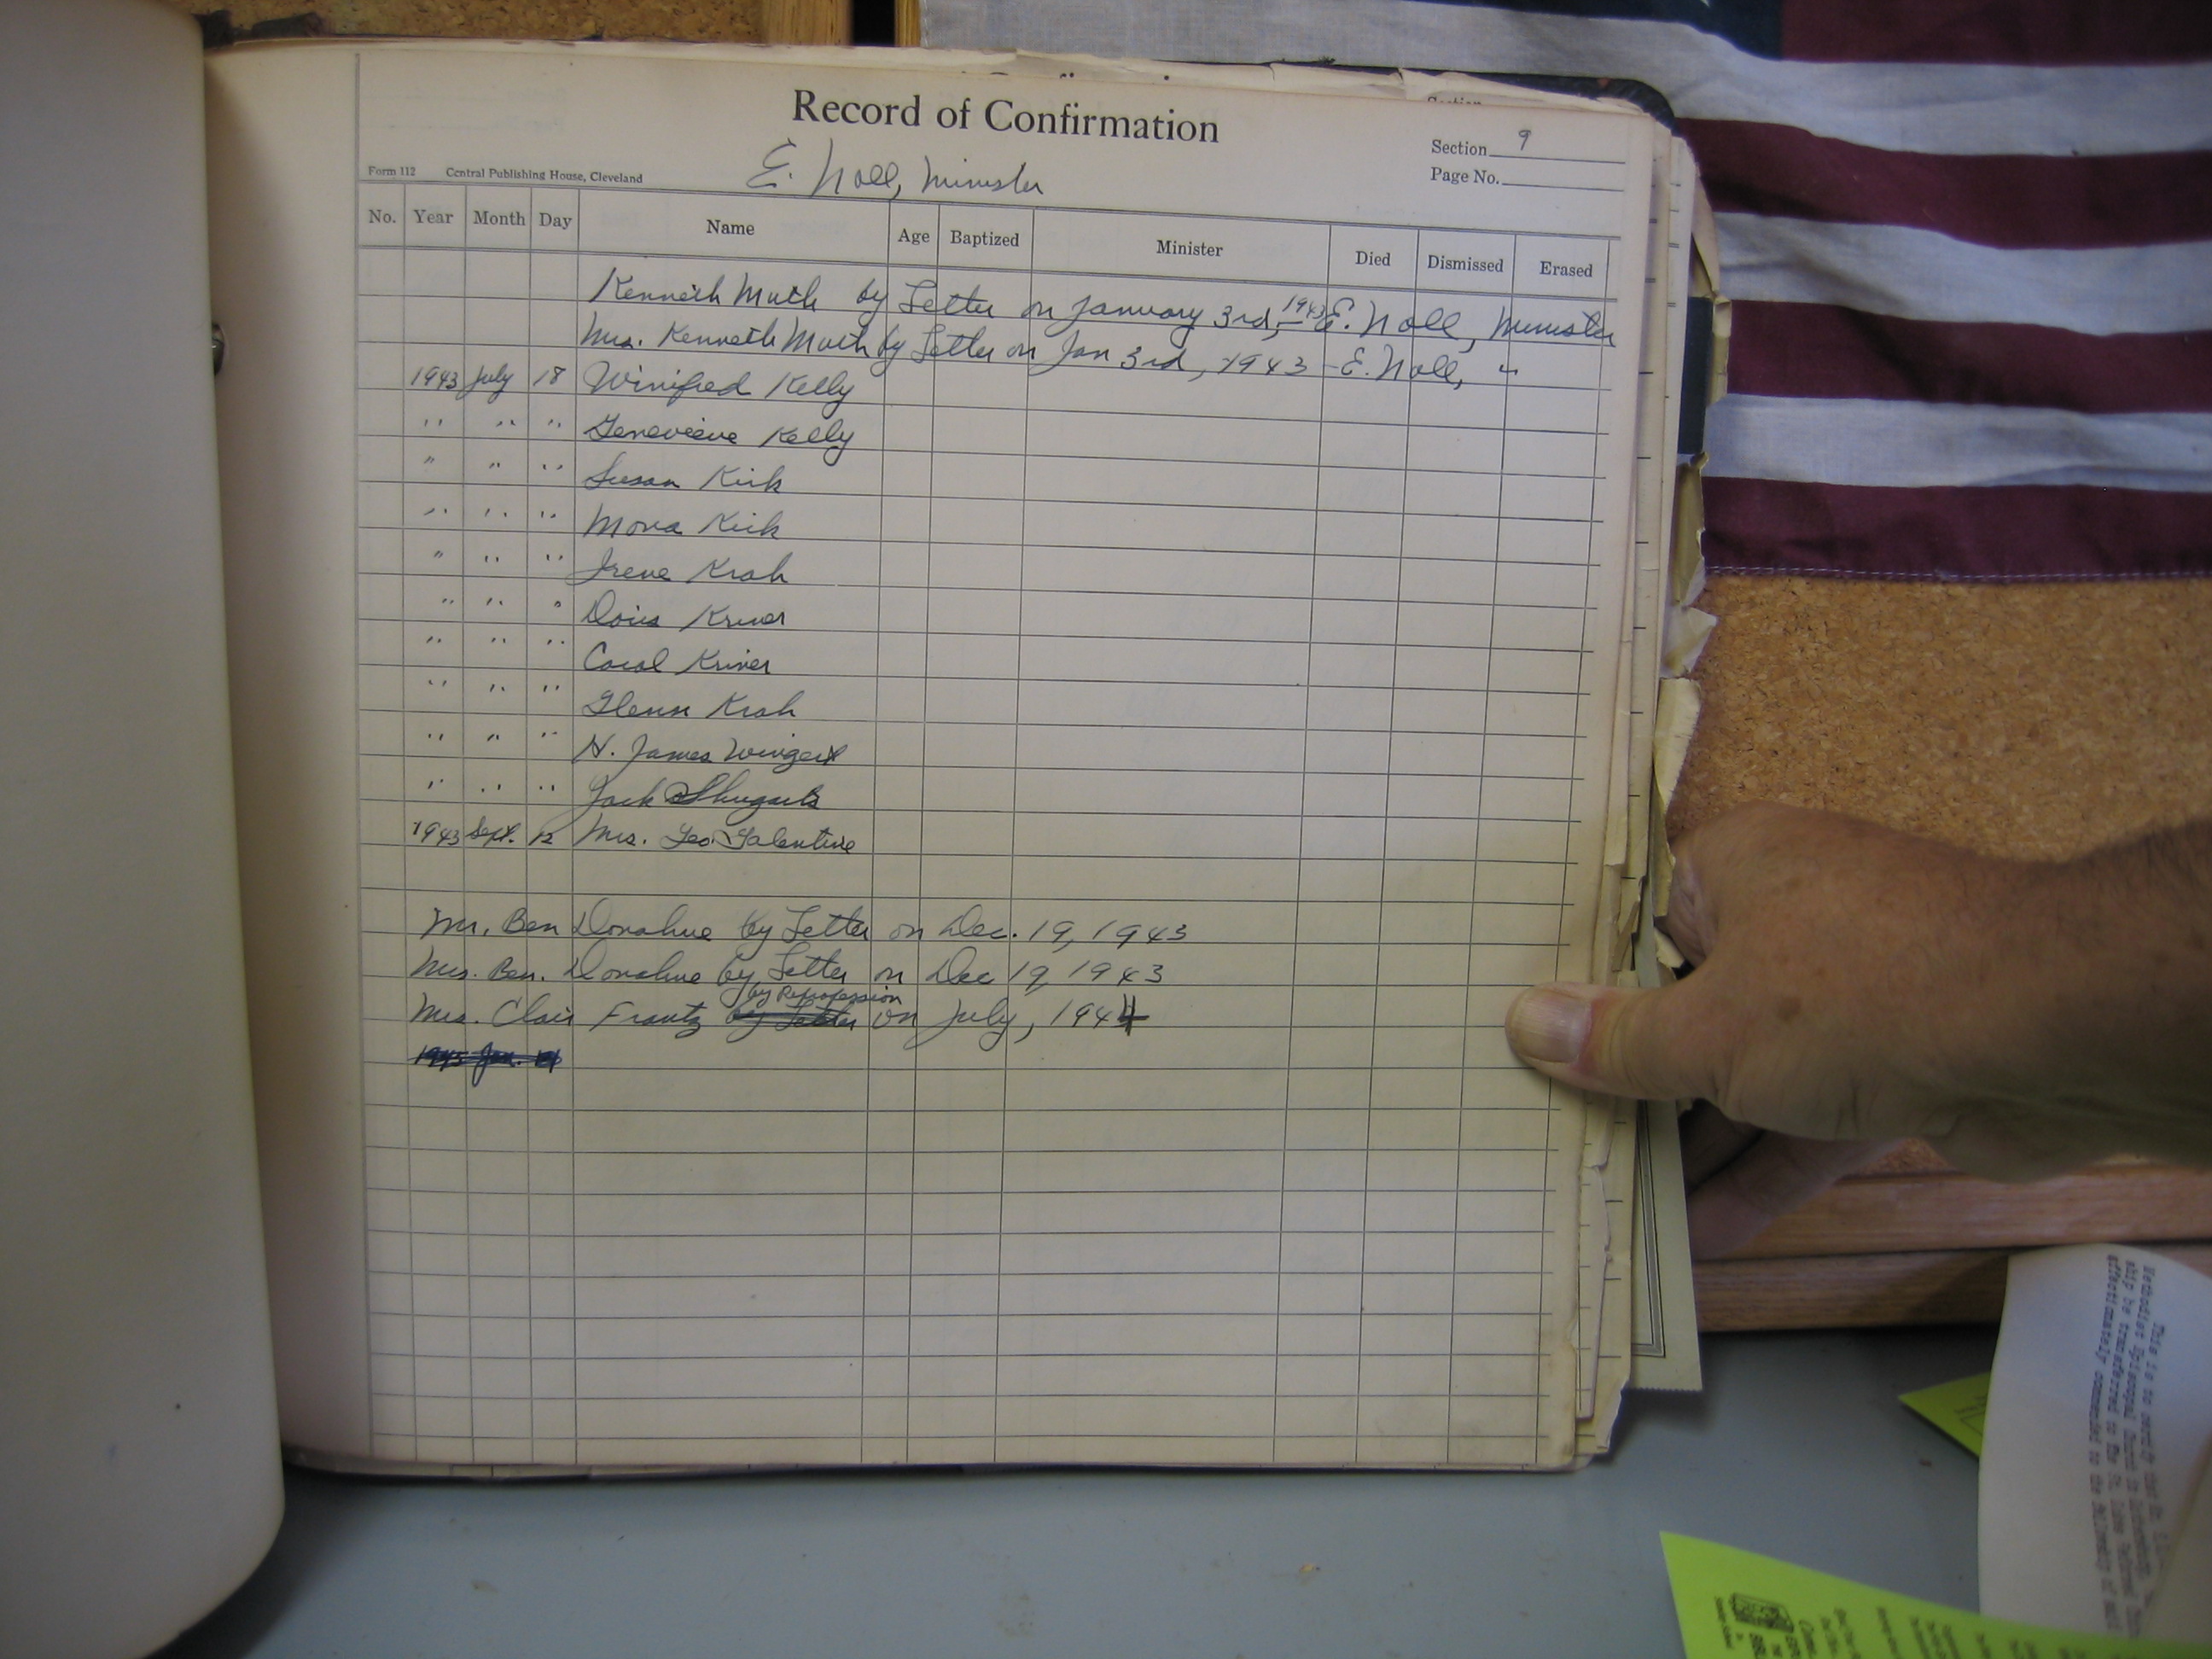 Record of Confirmation
Section 9
Page No.
Form 112 Central Publishing House, Cleveland
E. Noll, Minister
No. Year Month Day Name Age Baptized Minister Died Dismissed Erased
Kenneth Muth by Letter on January 3rd, 1943 E. Noll, Minister
Mrs. Kenneth Muth by Letter on Jan 3rd, 1943 - E. Noll, "
1943 July 18 Winifred Kelly
" " " Genevieve Kelly
" " " Susan Kirk
" " " Mona Kirk
" " " Irene Krah
" " " Doris Kriner
" " " Carol Kriner
" " " Glenn Krah
" " " H. James Wingert
" " " Jack Shugarts
1943 Sept. 12 Mrs. Geo. Galentine
Mr. Ben Donahue by Letter on Dec. 19, 1943
Mrs. Ben. Donahue by Letter on Dec 19, 1943
by Reprofession
Mrs. Clair Frantz by Letter on July, 1944
1945 Jan.
This is to certify that
Methodist Episcopal Church
ship be transferred to the St. Reformed
affectionately commended to the fellowship of